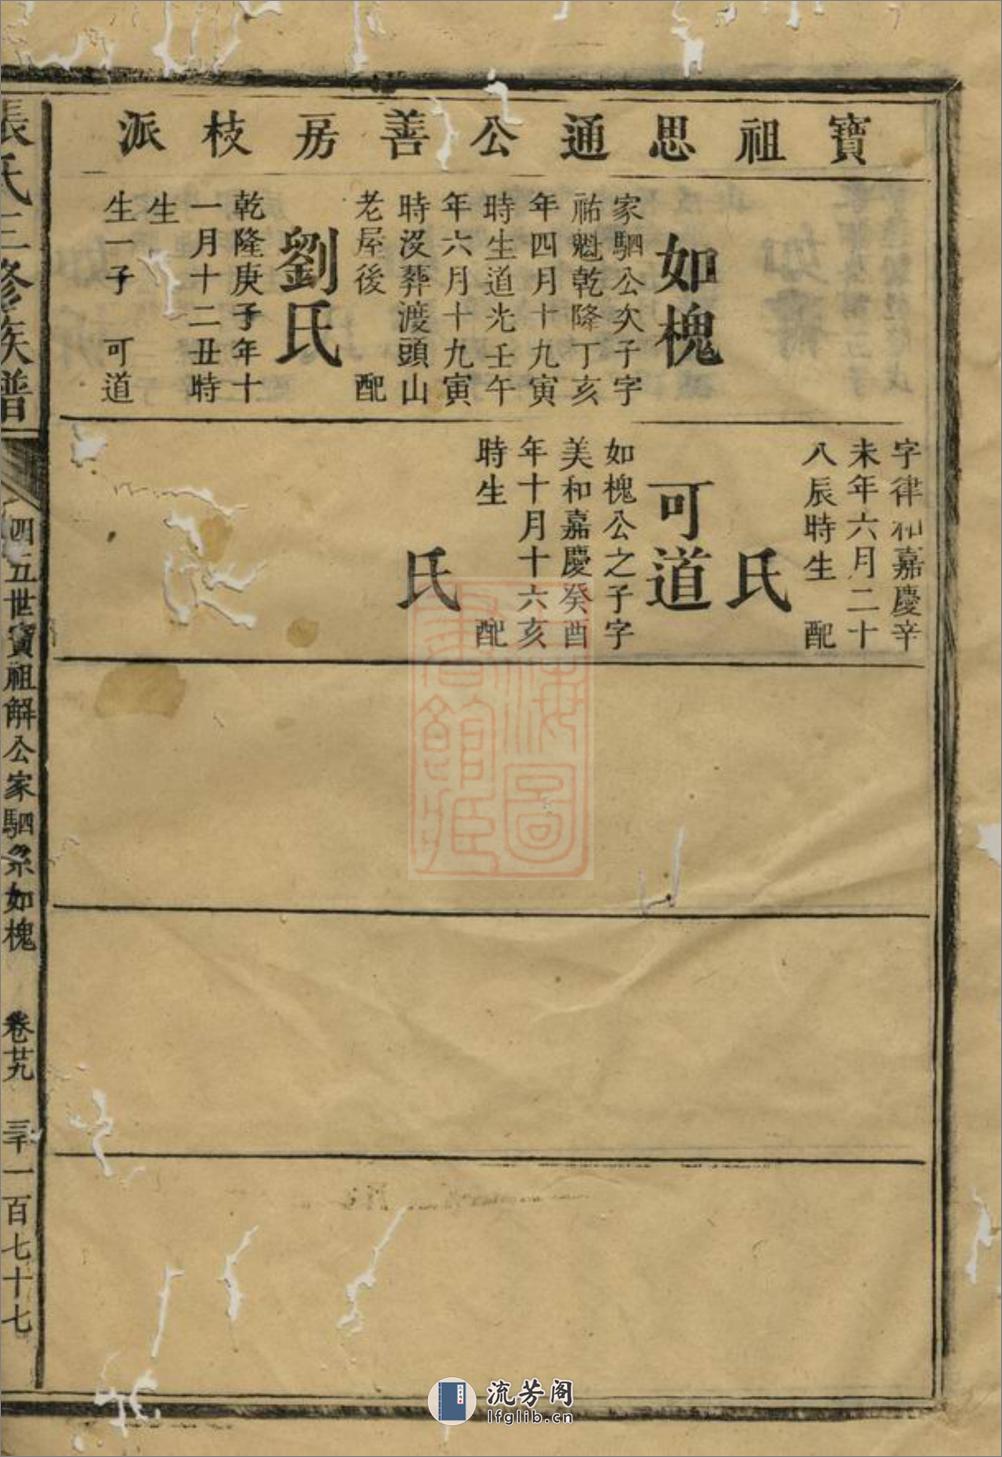 寶祖思通公善房枝派
如槐
家駟公次子字
祐魁乾隆丁亥
年四月十九寅
時生道光壬午
年六月十九寅
時沒葬渡頭山
老屋後 配
劉氏
乾隆庚子年十
一月十二丑時
生
生一子 可道
字律和嘉慶辛
未年六月二十
八辰時生 配
氏
可道
如槐公之子字
美和嘉慶癸酉
年十月十六亥
時生 配
氏
張氏三修族譜
四五世寶祖解公家駟系如槐
卷廿九
三千一百七十七
流芳阁
lfglib.cn